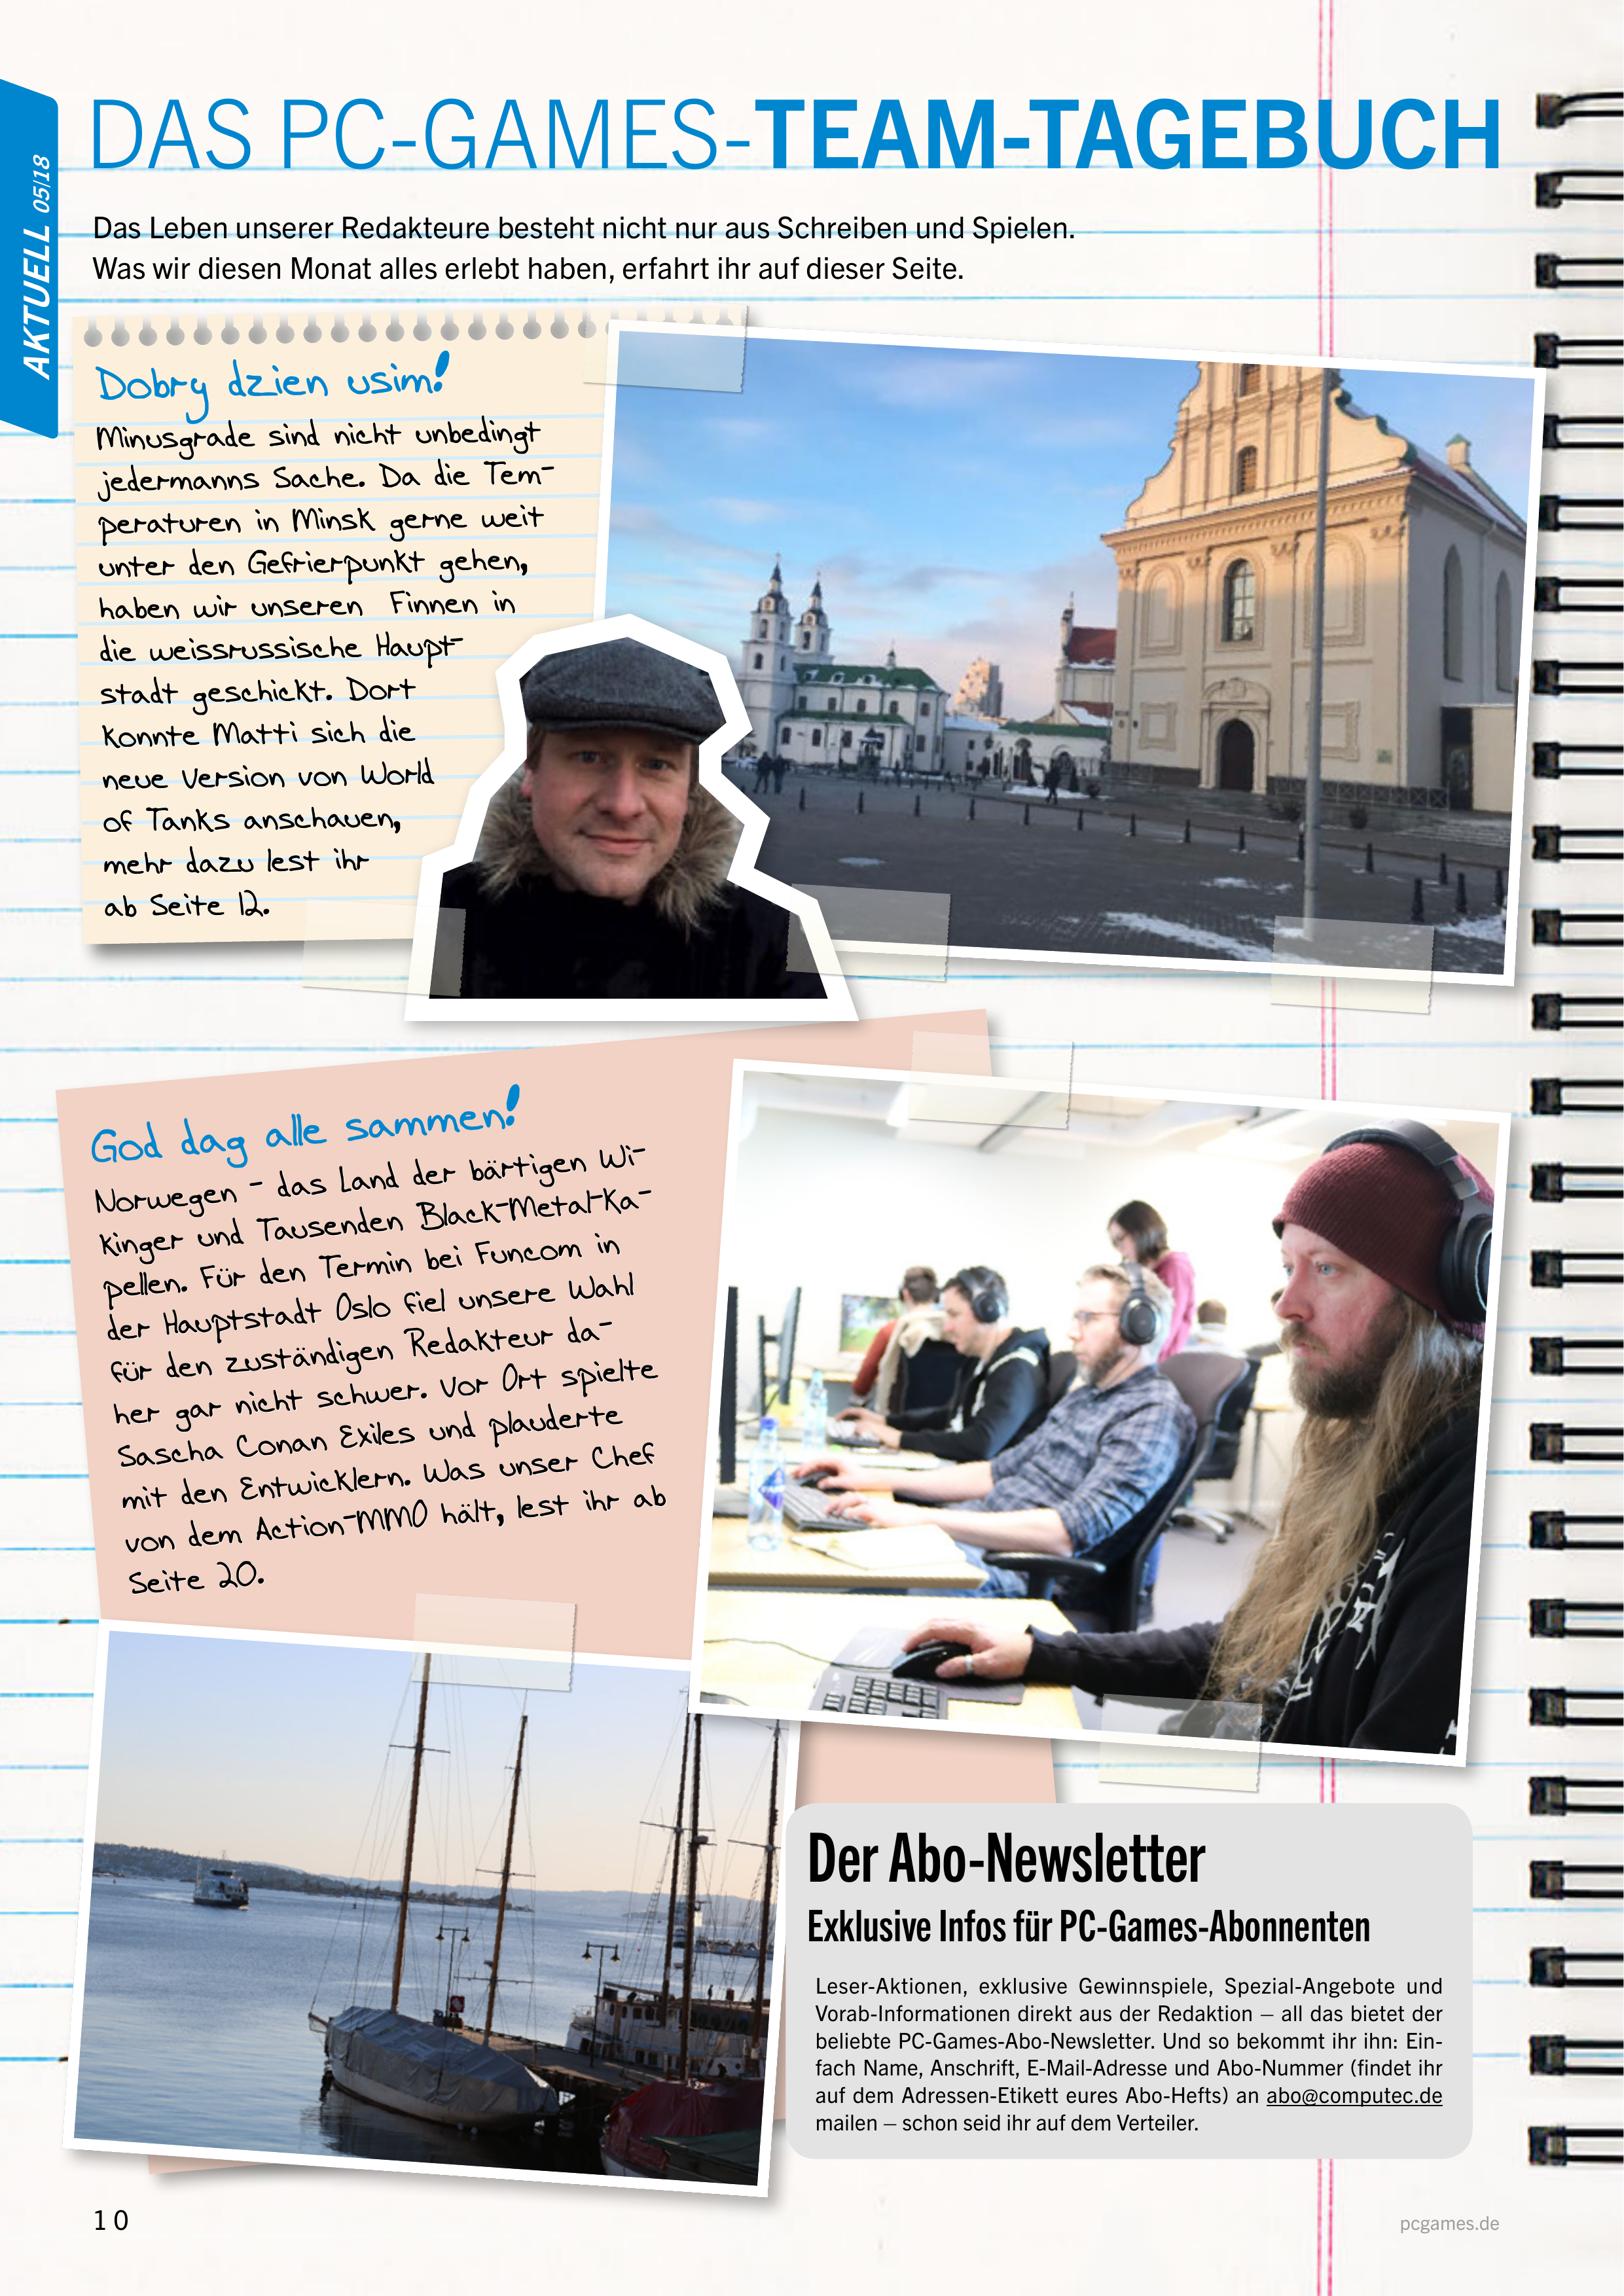 AKTUELL 05|18
DAS PC-GAMES-TEAM-TAGEBUCH
Das Leben unserer Redakteure besteht nicht nur aus Schreiben und Spielen.
Was wir diesen Monat alles erlebt haben, erfahrt ihr auf dieser Seite.
Dobry dzien usim!
Minusgrade sind nicht unbedingt
jedermanns Sache. Da die Tem-
peraturen in Minsk gerne weit
unter den Gefrierpunkt gehen,
haben wir unseren Finnen in
die weissrussische Haupt-
stadt geschickt. Dort
konnte Matti sich die
neue Version von World
of Tanks anschauen,
mehr dazu lest ihr
ab Seite 12.
God dag alle sammen!
Norwegen - das Land der bärtigen Wi-
kinger und Tausenden Black-Metal-Ka-
pellen. Für den Termin bei Funcom in
der Hauptstadt Oslo fiel unsere Wahl
für den zuständigen Redakteur da-
her gar nicht schwer. Vor Ort spielte
Sascha Conan Exiles und plauderte
mit den Entwicklern. Was unser Chef
von dem Action-MMO hält, lest ihr ab
Seite 20.
Der Abo-Newsletter
Exklusive Infos für PC-Games-Abonnenten
Leser-Aktionen, exklusive Gewinnspiele, Spezial-Angebote und
Vorab-Informationen direkt aus der Redaktion – all das bietet der
beliebte PC-Games-Abo-Newsletter. Und so bekommt ihr ihn: Ein-
fach Name, Anschrift, E-Mail-Adresse und Abo-Nummer (findet ihr
auf dem Adressen-Etikett eures Abo-Hefts) an abo@computec.de
mailen – schon seid ihr auf dem Verteiler.
10
pcgames.de